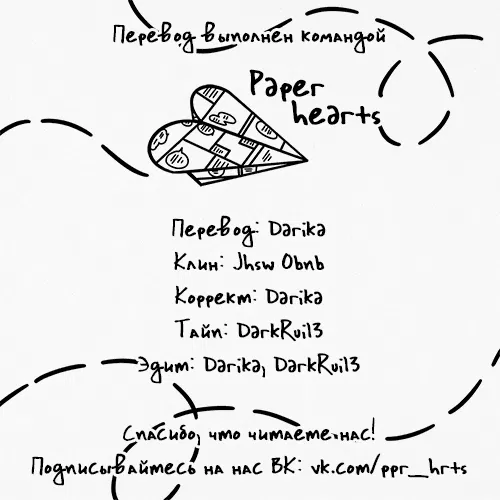 Перевод выполнен командой
Paper
hearts
Перевод: Darika
Клин: Jhsw Obnb
Коррект: Darika
Тайп: DarkRui13
Эдит: Darika, DarkRui13
Спасибо, что читаете нас!
Подписывайтесь на нас ВК: vk.com/ppr_hrts